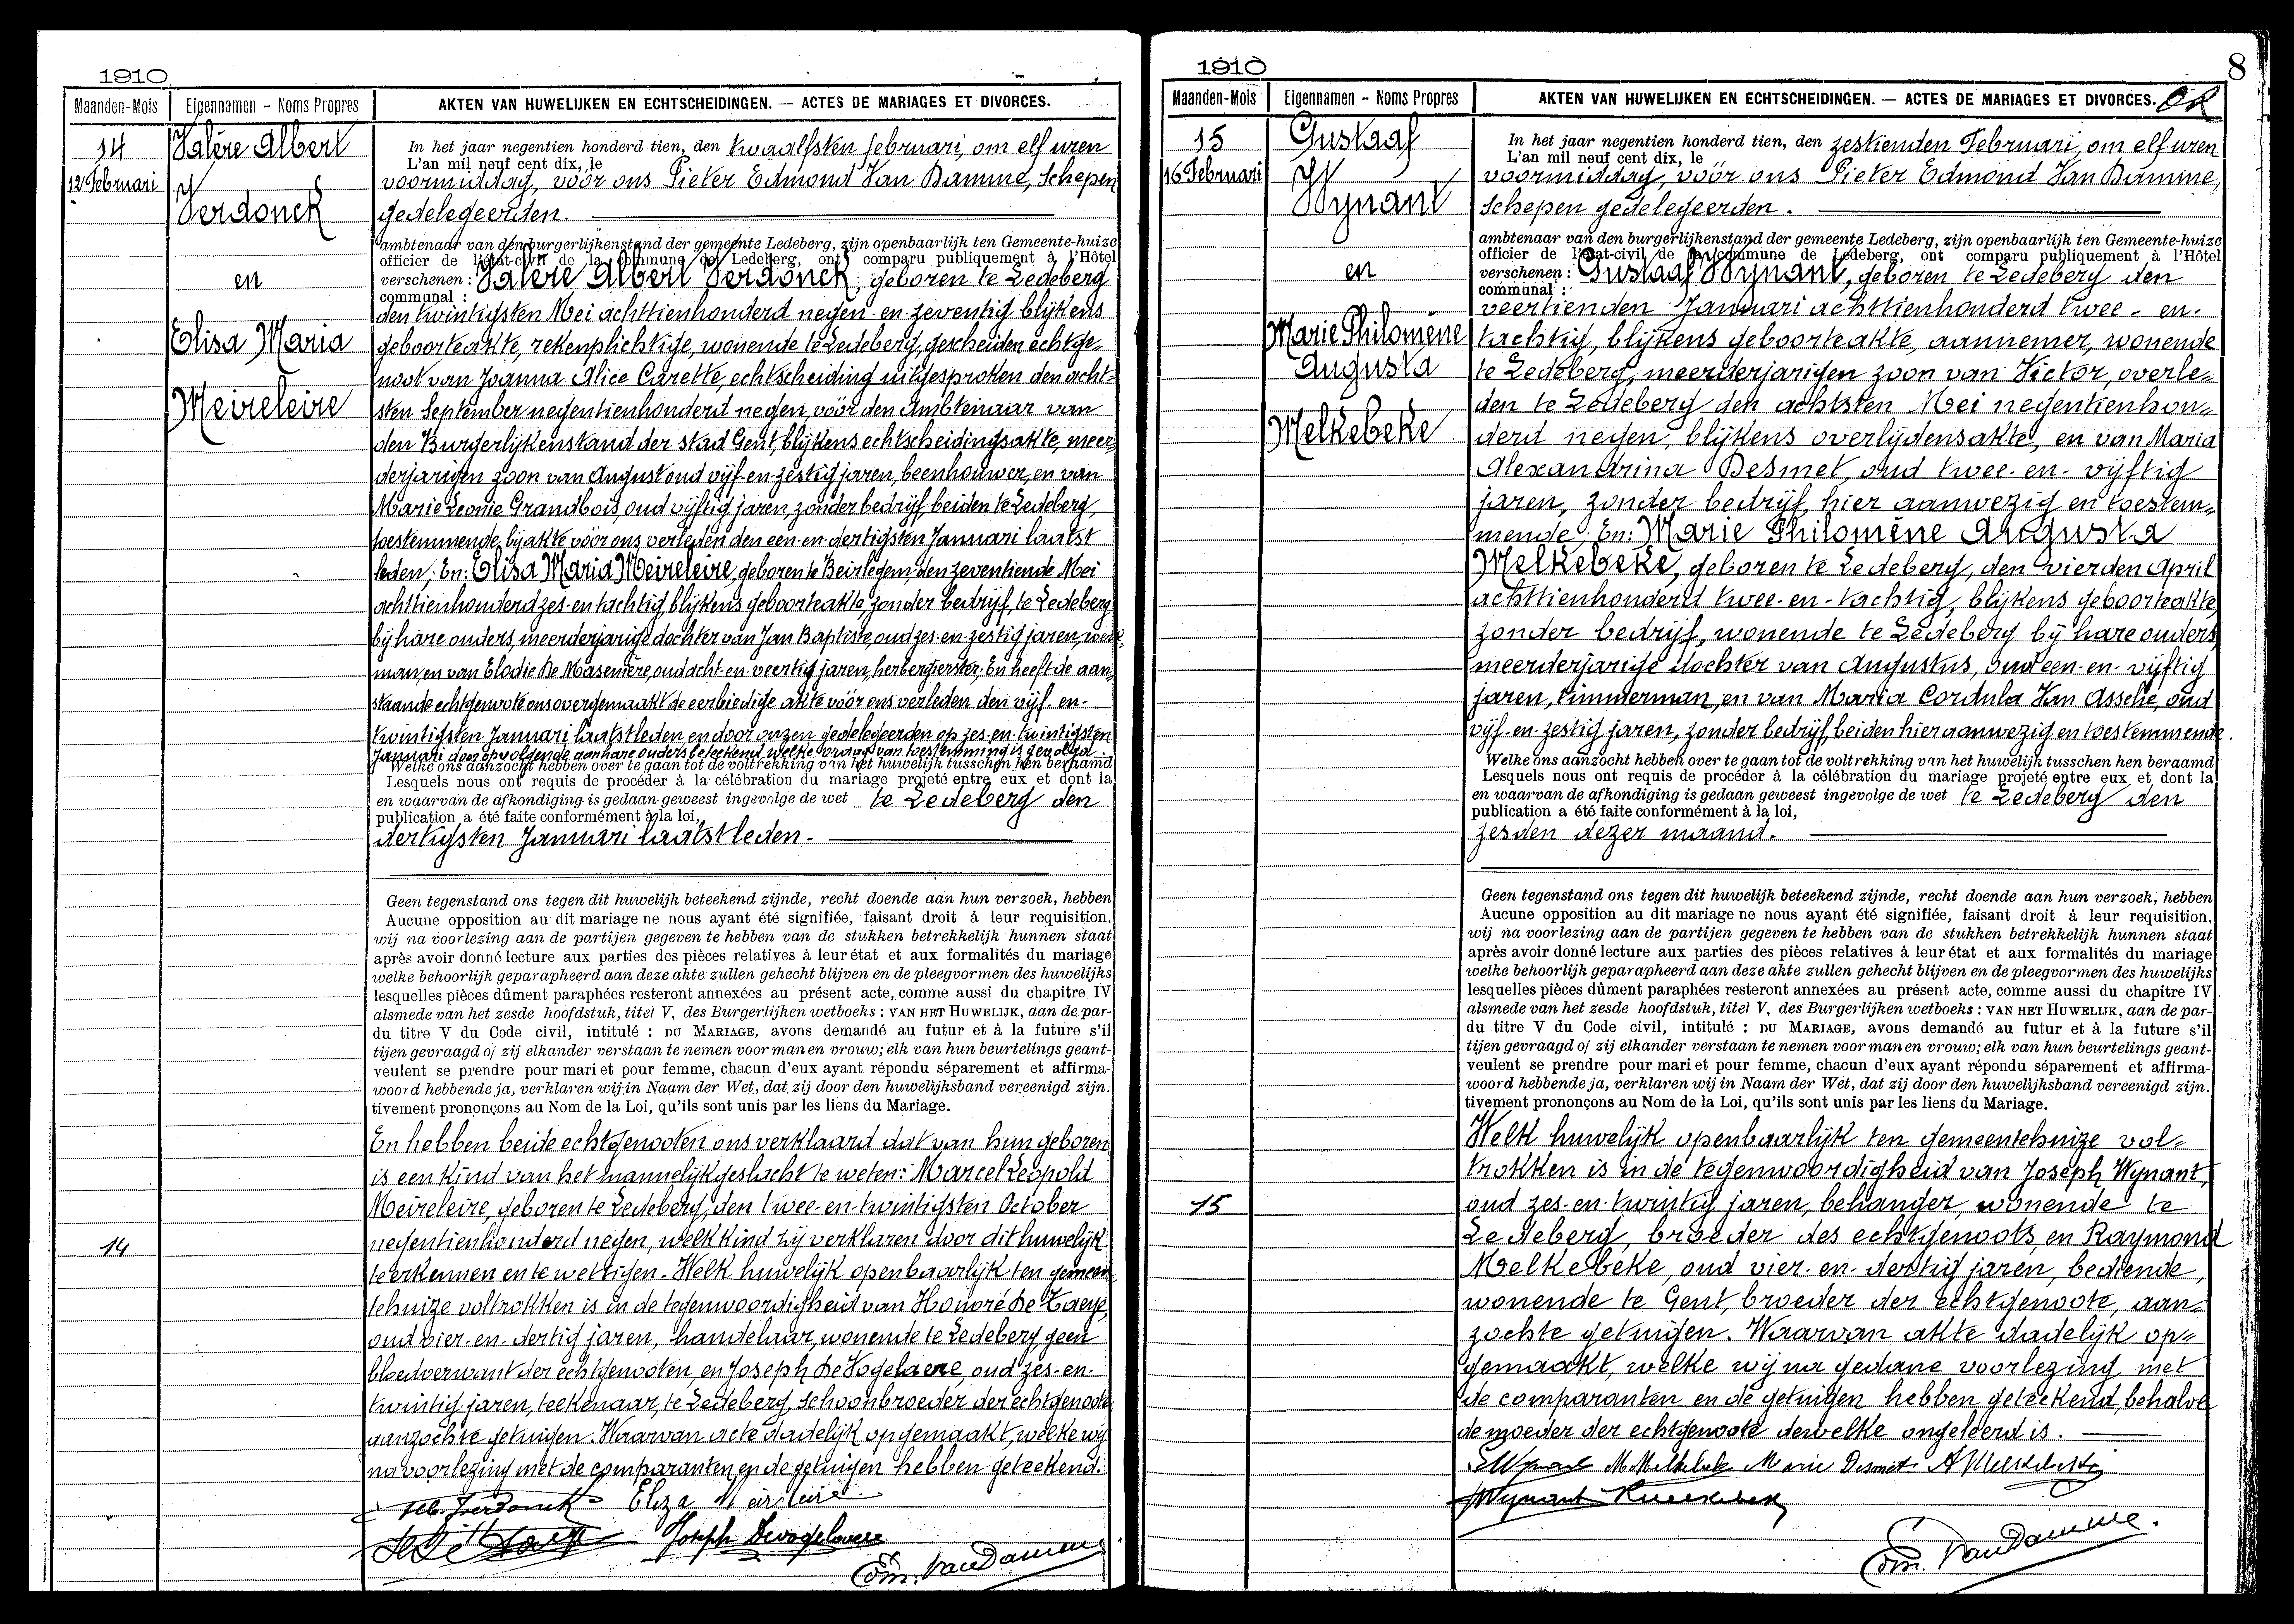 1910
Maanden-Mois
Eigennamen - Noms Propres
AKTEN VAN HUWELIJKEN EN ECHTSCHEIDINGEN. — ACTES DE MARIAGES ET DIVORCES.
14
12 Februari
Valère Albert
Verdonck
en
Elisa Maria
Meireleire
In het jaar negentien honderd tien, den twaalfsten februari, om elf uren
L'an mil neuf cent dix, le
voormiddag, vóór ons Pieter Edmond Van Damme, Schepen
gedelegeerden.
ambtenaar van den burgerlijkenstand der gemeente Ledeberg, zijn openbaarlijk ten Gemeente-huize
officier de l'état-civil de la commune de Ledeberg, ont comparu publiquement à l'Hôtel
verschenen : Valère Albert Verdonck, geboren te Ledeberg
communal :
den twintigsten Mei achttienhonderd negen-en-zeventig blijkens
geboorteakte, rekenplichtige, wonende te Ledeberg, gescheiden echtge-
noot van Joanna Alice Carette, echtscheiding uitgesproken den acht-
sten September negentienhonderd negen, vóór den Ambtenaar van
den Burgerlijkenstand der stad Gent, blijkens echtscheidingsakte, meer
derjarigen zoon van August oud vijf-en-zestig jaren, beenhouwer, en van
Marie Leonie Grandbois, oud vijftig jaren, zonder bedrijf, beiden te Ledeberg,
toestemmende bij akte vóór ons verleden den een-en-dertigsten Januari laatst
leden; En: Elisa Maria Meireleire, geboren te Beirlegem, den zeventiende Mei
achttienhonderd zes-en-tachtig, blijkens geboorteakte, zonder bedrijf, te Ledeberg
bij hare ouders, meerderjarige dochter van Jan Baptiste, oud zes-en-zestig jaren, werk-
man, en van Elodie De Masenière, oud acht-en-veertig jaren, herbergierster; En heeft de aan-
staande echtgenoote ons overgemaakt de eerbiedige akte vóór ons verleden den vijf-en-
twintigsten Januari laatstleden en door onzen gedelegeerden op zes-en-twintigsten
Januari daaropvolgende aan hare ouders beteekend, welke vraag van toestemming is gevolgd.
Welke ons aanzocht hebben over te gaan tot de voltrekking van het huwelijk tusschen hen beraamd
Lesquels nous ont requis de procéder à la célébration du mariage projeté entre eux et dont la
en waarvan de afkondiging is gedaan geweest ingevolge de wet te Ledeberg den
publication a été faite conformément à la loi,
dertigsten Januari laatstleden.
Geen tegenstand ons tegen dit huwelijk beteekend zijnde, recht doende aan hun verzoek, hebben
Aucune opposition au dit mariage ne nous ayant été signifiée, faisant droit à leur requisition,
wij na voorlezing aan de partijen gegeven te hebben van de stukken betrekkelijk hunnen staat
après avoir donné lecture aux parties des pièces relatives à leur état et aux formalités du mariage
welke behoorlijk geparapheerd aan deze akte zullen gehecht blijven en de pleegvormen des huwelijks
lesquelles pièces dûment paraphées resteront annexées au présent acte, comme aussi du chapitre IV
alsmede van het zesde hoofdstuk, titel V, des Burgerlijken wetboeks : VAN HET HUWELIJK, aan de par-
du titre V du Code civil, intitulé : DU MARIAGE, avons demandé au futur et à la future s'il
tijen gevraagd of zij elkander verstaan te nemen voor man en vrouw; elk van hun beurtelings geant-
veulent se prendre pour mari et pour femme, chacun d'eux ayant répondu séparement et affirma-
woord hebbende ja, verklaren wij in Naam der Wet, dat zij door den huwelijksband vereenigd zijn.
tivement prononçons au Nom de la Loi, qu'ils sont unis par les liens du Mariage.
En hebben beide echtgenooten ons verklaard dat van hun geboren
is een kind van het mannelijk geslacht te weten: Marcel Leopold
Meireleire, geboren te Ledeberg, den twee-en-twintigsten October
14
negentienhonderd negen, welk kind zij verklaren door dit huwelijk
te erkennen en te wettigen. Welk huwelijk openbaarlijk ten gemeen-
tehuize voltrokken is in de tegenwoordigheid van Honoré De Zaeye,
oud vier-en-dertig jaren, handelaar, wonende te Ledeberg, geen
bloedverwant der echtgenooten, en Joseph De Vogelaere, oud zes-en-
twintig jaren, teekenaar, te Ledeberg, schoonbroeder der echtgenoote
aanzochte getuigen. Waarvan acte dadelijk opgemaakt, welke wij
na voorlezing met de comparanten en de getuigen hebben geteekend.
Alb. Verdonck Eliza Meirleire
Joseph Devogelaere
Edm. Van Damme
1910
8
Maanden-Mois
Eigennamen - Noms Propres
AKTEN VAN HUWELIJKEN EN ECHTSCHEIDINGEN. — ACTES DE MARIAGES ET DIVORCES. OK
15
16 Februari
Gustaaf
Wynant
en
Marie Philomène
Augusta
Melkebeke
In het jaar negentien honderd tien, den zestienden Februari, om elf uren
L'an mil neuf cent dix, le
voormiddag, vóór ons Pieter Edmond Van Damme,
schepen gedelegeerden.
ambtenaar van den burgerlijkenstand der gemeente Ledeberg, zijn openbaarlijk ten Gemeente-huize
officier de l'état-civil de la commune de Ledeberg, ont comparu publiquement à l'Hôtel
verschenen : Gustaaf Wynant, geboren te Ledeberg den
communal :
veertienden Januari achttienhonderd twee-en-
tachtig, blijkens geboorteakte, aannemer, wonende
te Ledeberg, meerderjarigen zoon van Victor, overle-
den te Ledeberg den achtsten Mei negentienhon-
derd negen, blijkens overlijdensakte, en van Maria
Alexandrina Desmet, oud twee-en-vijftig
jaren, zonder bedrijf, hier aanwezig en toestem-
mende; En: Marie Philomène Augusta
Melkebeke, geboren te Ledeberg, den vierden April
achttienhonderd twee-en-tachtig, blijkens geboorteakte,
zonder bedrijf, wonende te Ledeberg bij hare ouders,
meerderjarige dochter van Augustus, oud een-en-vijftig
jaren, timmerman, en van Maria Cordula Van Assche, oud
vijf-en-zestig jaren, zonder bedrijf, beiden hier aanwezig en toestemmende.
Welke ons aanzocht hebben over te gaan tot de voltrekking van het huwelijk tusschen hen beraamd
Lesquels nous ont requis de procéder à la célébration du mariage projeté entre eux et dont la
en waarvan de afkondiging is gedaan geweest ingevolge de wet te Ledeberg den
publication a été faite conformément à la loi,
zesden dezer maand.
Geen tegenstand ons tegen dit huwelijk beteekend zijnde, recht doende aan hun verzoek, hebben
Aucune opposition au dit mariage ne nous ayant été signifiée, faisant droit à leur requisition,
wij na voorlezing aan de partijen gegeven te hebben van de stukken betrekkelijk hunnen staat
après avoir donné lecture aux parties des pièces relatives à leur état et aux formalités du mariage
welke behoorlijk geparapheerd aan deze akte zullen gehecht blijven en de pleegvormen des huwelijks
lesquelles pièces dûment paraphées resteront annexées au présent acte, comme aussi du chapitre IV
alsmede van het zesde hoofdstuk, titel V, des Burgerlijken wetboeks : VAN HET HUWELIJK, aan de par-
du titre V du Code civil, intitulé : DU MARIAGE, avons demandé au futur et à la future s'il
tijen gevraagd of zij elkander verstaan te nemen voor man en vrouw; elk van hun beurtelings geant-
veulent se prendre pour mari et pour femme, chacun d'eux ayant répondu séparement et affirma-
woord hebbende ja, verklaren wij in Naam der Wet, dat zij door den huwelijksband vereenigd zijn.
tivement prononçons au Nom de la Loi, qu'ils sont unis par les liens du Mariage.
Welk huwelijk openbaarlijk ten gemeentehuize vol-
trokken is in de tegenwoordigheid van Joseph Wynant,
15
oud zes-en-twintig jaren, behanger, wonende te
Ledeberg, broeder des echtgenoots, en Raymond
Melkebeke, oud vier-en-dertig jaren, bediende,
wonende te Gent, broeder der echtgenoote, aan-
zochte getuigen. Waarvan akte dadelijk op-
gemaakt, welke wij na gedane voorlezing, met
de comparanten en de getuigen hebben geteekend, behalve
de moeder der echtgenoote dewelke ongeleerd is.
Wynant M Melkebeke Marie Desmet A Melkebeke
J Wynant
Edm. Van Damme.